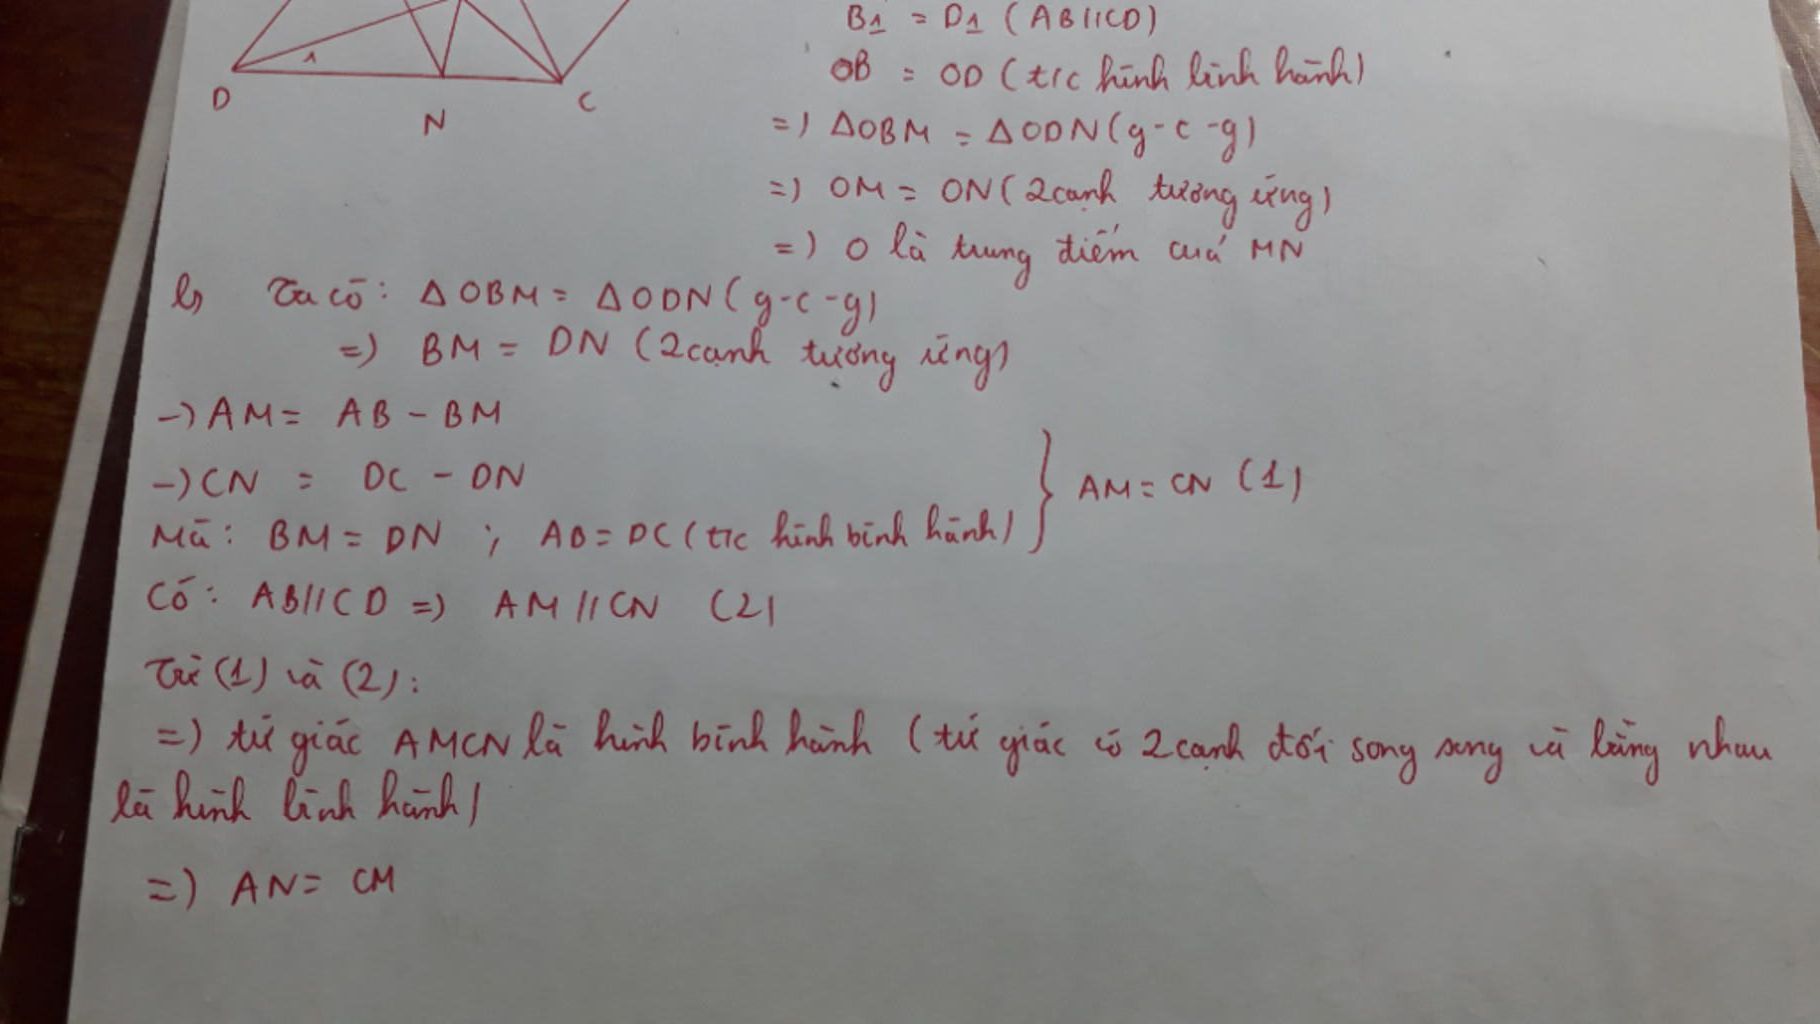 B1 = D1 (AB//CD)
OB = OD (t/c hình bình hành)
=) ΔOBM = ΔODN (g-c-g)
=) OM = ON (2 cạnh tương ứng)
=) O là trung điểm cuả MN
1
D
N
C
b, Ta có: ΔOBM = ΔODN (g-c-g)
=) BM = DN (2 cạnh tương ứng)
-) AM = AB - BM
-) CN = DC - DN
AM = CN (1)
Mà: BM = DN ; AB = DC (t/c hình bình hành)
Có: AB//CD =) AM//CN (2)
Từ (1) và (2):
=) tứ giác AMCN là hình bình hành (tứ giác có 2 cạnh đối song song và bằng nhau
là hình bình hành)
=) AN = CM